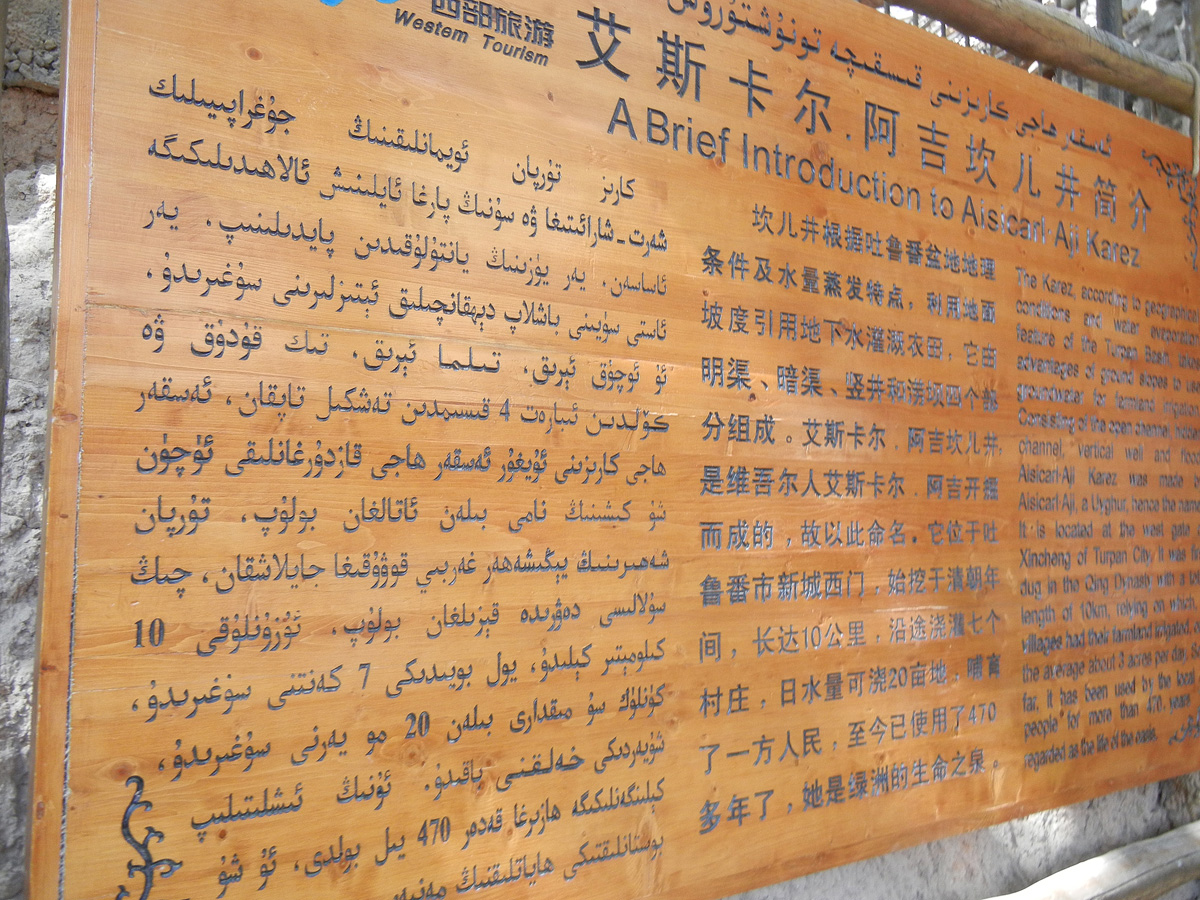 西部旅游
Western Tourism
ئەسقەر ھاجى كارىزىنى قىسقىچە تونۇشتۇرۇش
艾斯卡尔.阿吉坎儿井简介
A Brief Introduction to Aisicarl·Aji Karez
كارىز تۇرپان ئويمانلىقىنىڭ جۇغراپىيىلىك
شەرت-شارائىتىغا ۋە سۇنىڭ پارغا ئايلىنىش ئالاھىدىلىكىگە
ئاساسەن، يەر يۈزىنىڭ يانتۇلۇقىدىن پايدىلىنىپ، يەر
ئاستى سۈيىنى باشلاپ دېھقانچىلىق ئېتىزلىرىنى سۇغىرىدۇ،
ئۇ ئوچۇق ئېرىق، تىلما ئېرىق، تىك قۇدۇق ۋە
كۆلدىن ئىبارەت 4 قىسىمدىن تەشكىل تاپقان، ئەسقەر
ھاجى كارىزىنى ئۇيغۇر ئەسقەر ھاجى قازدۇرغانلىقى ئۈچۈن
شۇ كىشىنىڭ نامى بىلەن ئاتالغان بولۇپ، تۇرپان
شەھىرىنىڭ يېڭىشەھەر غەربىي قوۋۇقىغا جايلاشقان، چىڭ
سۇلالىسى دەۋرىدە قېزىلغان بولۇپ، ئۇزۇنلۇقى 10
كىلومېتىر كېلىدۇ، يول بويىدىكى 7 كەنتنى سۇغىرىدۇ،
كۈنلۈك سۇ مىقدارى بىلەن 20 مو يەرنى سۇغىرىدۇ,
شۇيەردىكى خەلقنى باقىدۇ. ئۇنىڭ ئىشلىتىلىپ
كېلىنگەنلىكىگە ھازىرغا قەدەر 470 يىل بولدى، ئۇ شۇ
بوستانلىقتىكى ھاياتلىقنىڭ
坎儿井根据吐鲁番盆地地理
条件及水量蒸发特点，利用地面
坡度引用地下水灌溉农田，它由
明渠、暗渠、竖井和涝坝四个部
分组成。艾斯卡尔.阿吉坎儿井,
是维吾尔人艾斯卡尔.阿吉开掘
而成的，故以此命名。它位于吐
鲁番市新城西门，始挖于清朝年
间，长达10公里，沿途浇灌七个
村庄，日水量可浇20亩地，哺育
了一方人民，至今已使用了470
多年了，她是绿洲的生命之泉。
The Karez, according to geographical
conditions and water evaporation
feature of the Turpan Basin,
advantages of ground slopes to
groundwater for farmland
Consisting of the open channel,
channel, vertical well and
Aisicarl·Aji Karez was made
Aisicarl·Aji, a Uyghur, hence the
It is located at the west gate
Xincheng of Turpan City. It was
dug in the Qing Dynasty with a
length of 10km, relying on which
villages had their farmland irrigated,
the average about 3 acres per day. So
far, it has been used by the local
people for more than 470 years
regarded as the life of the oasis.